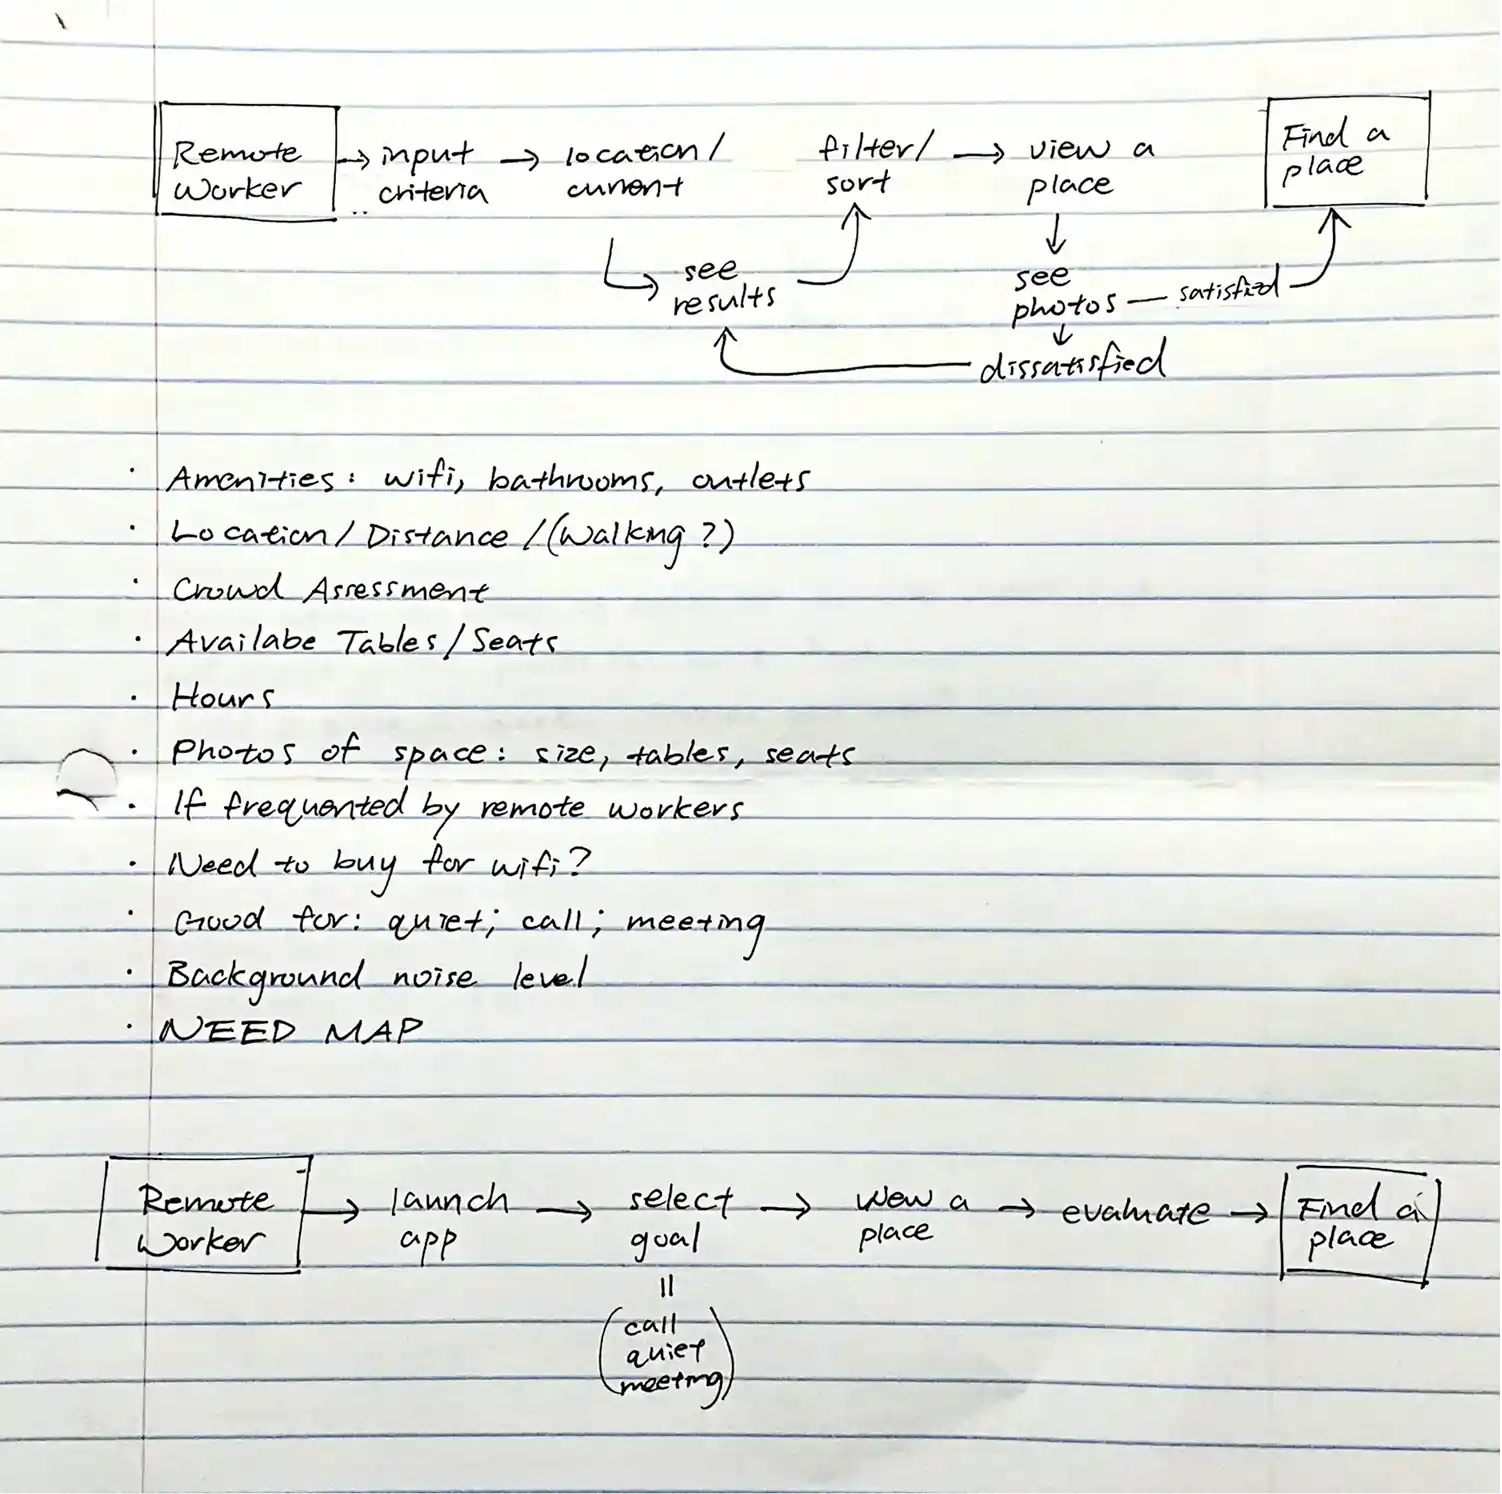 Remote Worker → input criteria → location/ current
see results
filter/ sort → view a place
see photos — satisfied
dissatisfied
Find a place
· Amenities: wifi, bathrooms, outlets
· Location/Distance/(Walking?)
· Crowd Assessment
· Availabe Tables/Seats
· Hours
· Photos of space: size, tables, seats
· If frequented by remote workers
· Need to buy for wifi?
· Good for: quiet; call; meeting
· Background noise level
· NEED MAP
Remote Worker → launch app → select goal → view a place → evaluate → Find a place
(call
quiet
meeting)